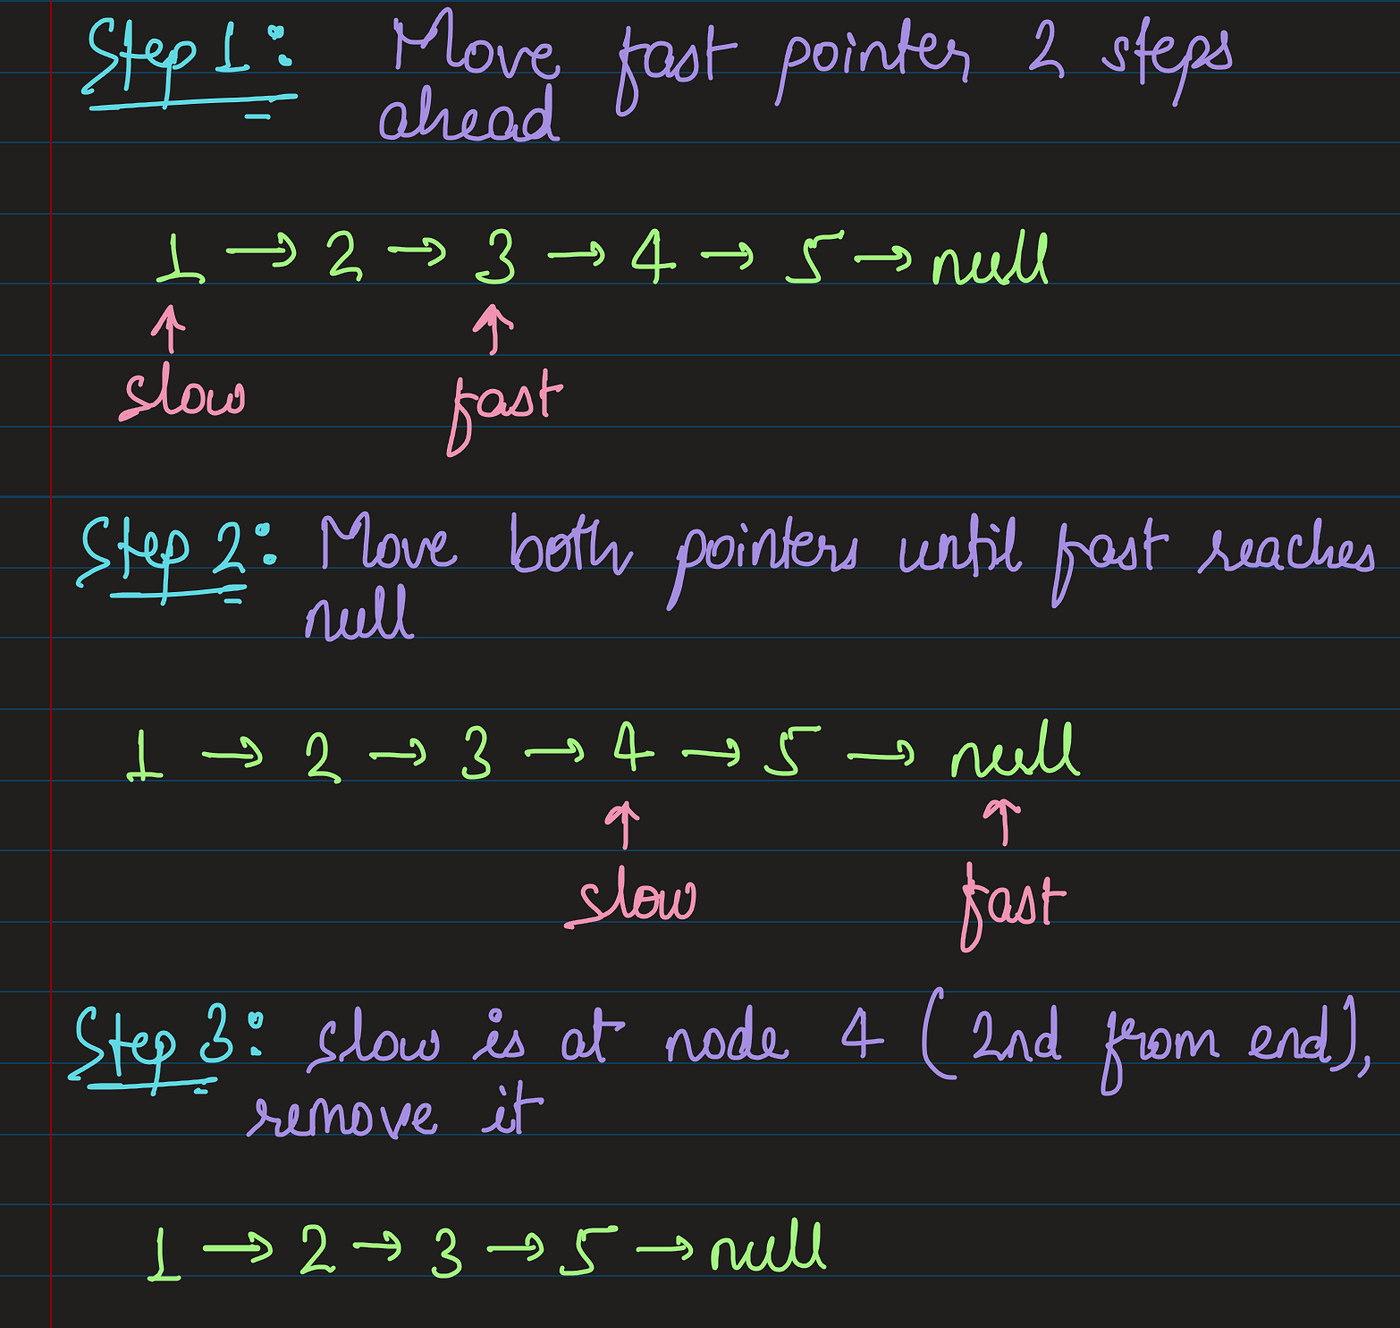 Step 1: Move fast pointer 2 steps
ahead
1 → 2 → 3 → 4 → 5 → null
↑ ↑
slow fast
Step 2: Move both pointers until fast reaches
null
1 → 2 → 3 → 4 → 5 → null
↑ ↑
slow fast
Step 3: slow is at node 4 (2nd from end),
remove it
1 → 2 → 3 → 5 → null